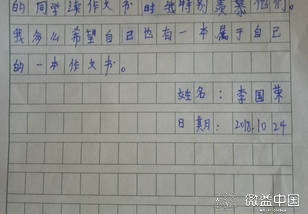 的同学读作文书时我特别羡慕他们。
我多么希望自己也有一本属于自己
的一本作文书。
姓名：李国荣
日期：2018.10.24
微益中国